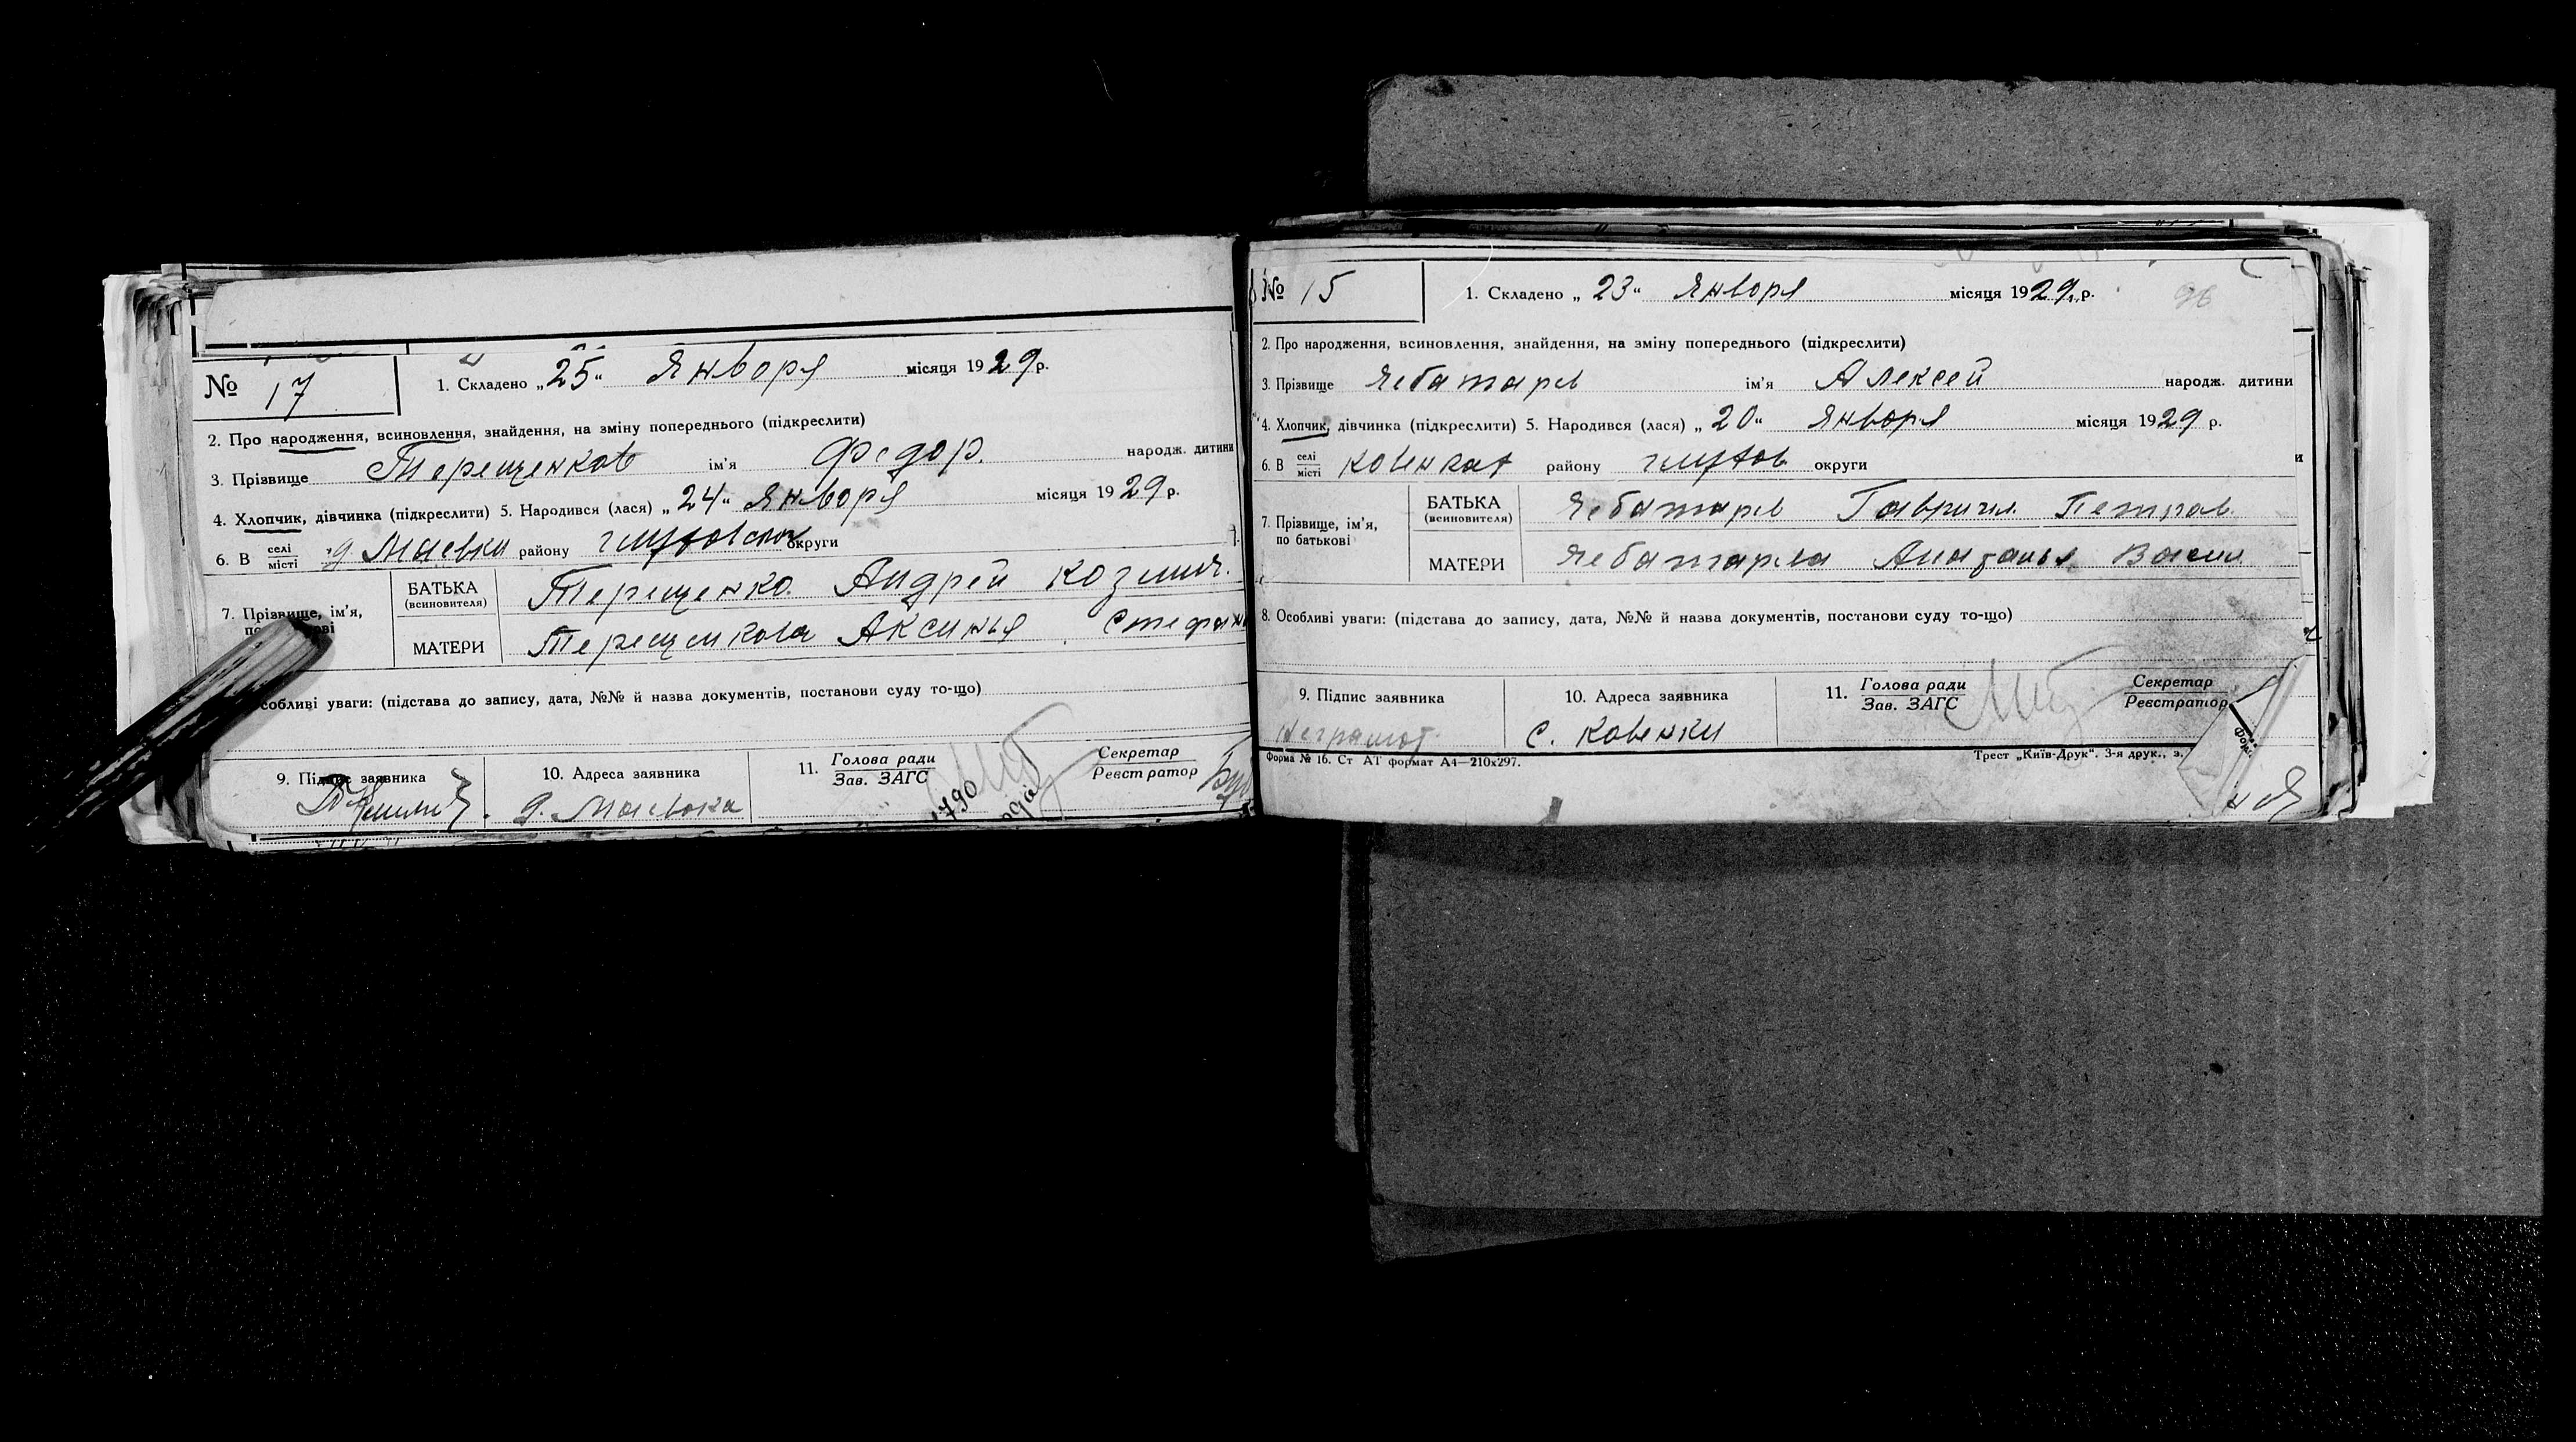 № 17
1. Складено „25“ Января місяця 1929 р.
2. Про народження, всиновлення, знайдення, на зміну попереднього (підкреслити)
3. Прізвище Терещенков ім'я Федор. народж. дитини
4. Хлопчик, дівчинка (підкреслити) 5. Народився (лася) „24“ Января місяця 1929 р.
6. В селі місті д Маевки району округи
7. Прізвище, ім'я,
БАТЬКА (всиновителя) Терещенко. Андрей Козмич.
МАТЕРИ Терещенкова Аксинья Стефан
собливі уваги: (підстава до запису, дата, №№ й назва документів, постанови суду то-що)
9. Підпис заявника
10. Адреса заявника
д. Маевока
11. Голова ради
Зав. ЗАГС
Секретар
Реєстратор
№ 15
1. Складено „23“ Января місяця 1929 р.
96
2. Про народження, всиновлення, знайдення, на зміну попереднього (підкреслити)
3. Прізвище Чеботарев ім'я Алексей народж. дитини
4. Хлопчик, дівчинка (підкреслити) 5. Народився (лася) „20“ Января місяця 1929 р.
6. В селі місті Ковенках району глухов округи
7. Прізвище, ім'я, по батькові
БАТЬКА (всиновителя) Чеботарев Гавриил Петров
МАТЕРИ Чеботарева Васил
8. Особливі уваги: (підстава до запису, дата, №№ й назва документів, постанови суду то-що)
9. Підпис заявника
Неграмот.
10. Адреса заявника
с. Ковенки
11. Голова ради
Зав. ЗАГС
Секретар
Реєстратор
Форма № 16. Ст АТ формат А4—210х297.
Трест „Київ-Друк“. 3-я друк., з.